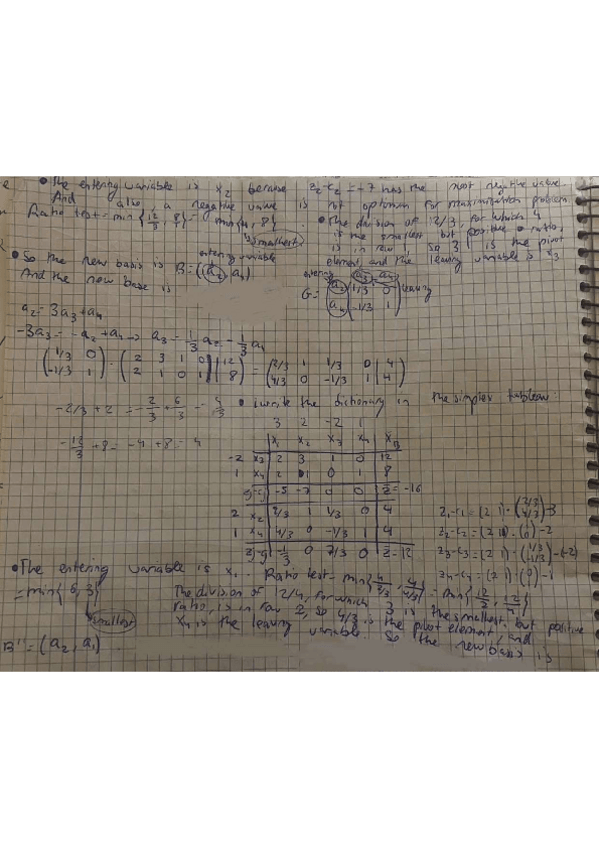 • The entering variable is x2 because z2-c2 = -7 has the most negative value.
And also, a negative value is not optimum for maximization problem
Ratio test = min{12/3, 8} = min{4, 8}
smallest
• The division of 12/3, for which 4
is the smallest but positive ratio,
is in row 1, so 3 is the pivot
element and the leaving variable is x3
• So the new basis is B = (a2, a4)
entering variable
And the new base is
entering a3 a4
G = a2 ( 1/3 0 ) leaving
a4 ( -1/3 1 )
a2 = 3a3 + a4
-3a3 = -a2 + a4 → a3 = 1/3 a2 - 1/3 a4
( 1/3 0 ) · ( 2 3 1 0 | 12 ) = ( 2/3 1 1/3 0 | 4 )
( -1/3 1 ) ( 2 1 0 1 | 8 ) ( 4/3 0 -1/3 1 | 4 )
-2/3 + 2 = -2/3 + 6/3 = 4/3
-12/3 + 8 = -4 + 8 = 4
• I write the dictionary in the simplex tableau:
3 2 -2 1
x1 x2 x3 x4 xB
-2 x3 2 3 1 0 12
1 x4 2 1 0 1 8
zj-cj -5 -7 0 0 z = -16
2 x2 2/3 1 1/3 0 4
1 x4 4/3 0 -1/3 1 4
zj-cj -1/3 0 7/3 0 z = 12
z1-c1 = (2 1) · (2/3 4/3) - 3
z2-c2 = (2 1) · (1 0) - 2
z3-c3 = (2 1) · (1/3 -1/3) - (-2)
z4-c4 = (2 1) · (0 1) - 1
• The entering variable is x1. Ratio test = min{4/2/3, 4/4/3} = min{12/2, 12/4}
= min{6, 3}
smallest
The division of 12/4, for which 3 is the smallest but positive
ratio, is in row 2, so 4/3 is the pivot element, and
x4 is the leaving variable. So the new basis is
B'' = (a2, a1)